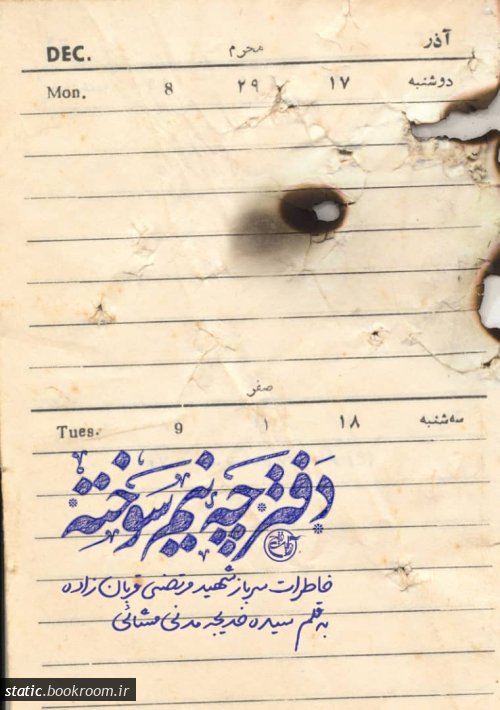 DEC. محرم آذر
Mon. 8 ۲۹ ۱۷ دوشنبه
صفر
Tues. 9 ۱ ۱۸ سه‌شنبه
دفترچه نیم سوخته
خاطرات سرباز شهید مرتضی ویان زاده
به قلم سیده خدیجه مدنی مشائی
static.bookroom.ir